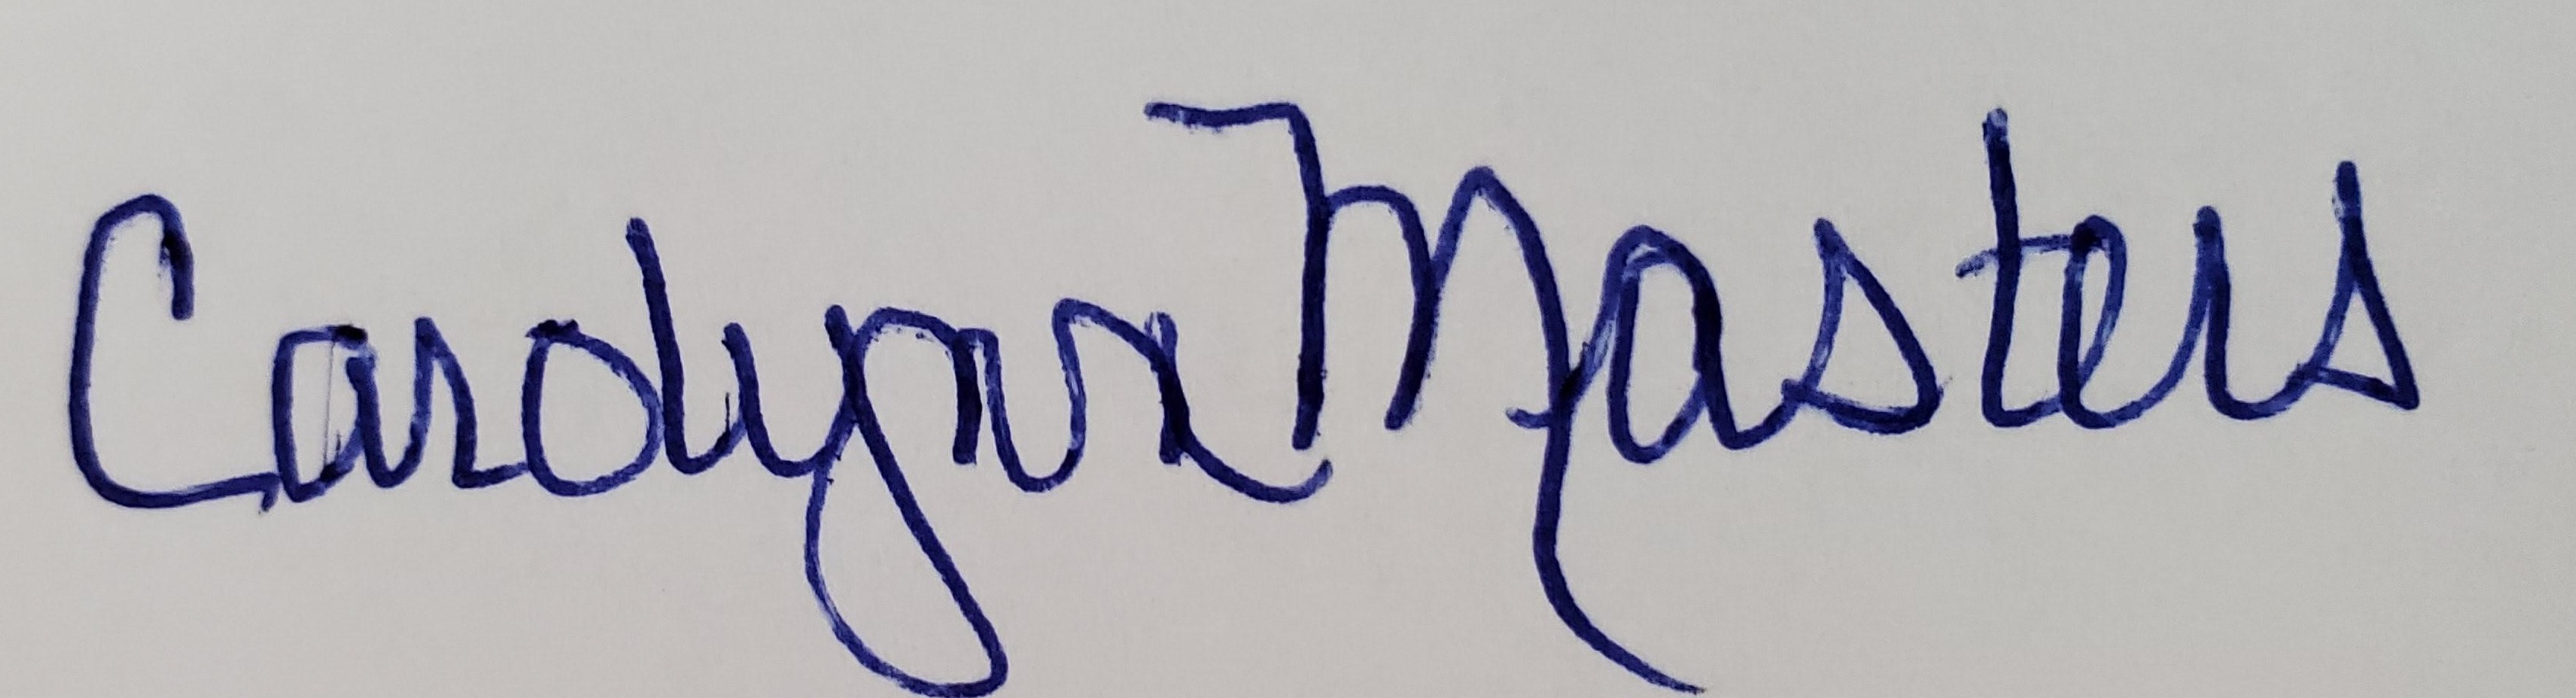 Carolynn Masters